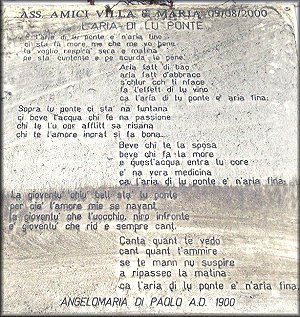 ASS. AMICI VILLA S. MARIA 09/08/2000
L'ARIA DI LU PONTE
e l'aria di lu ponte e' n'aria fino
ci sta l'amore me che me vo bene
la voglie respira' sera e matine
pe sta cuntente e pe scurda le pene
Aria fatt di bao
aria fatt d'abbracc
s'chiur cch ti n'facc
fa l'effett di lu vino
ca l'aria di lu ponte e' aria fina.
Sopra lu ponte ci sta na funtana
ci beve l'acqua chi te na passione
chi te l'u ore afflitt sa risana
chi te l'amore incrat si fa bona..
Beve chi te la sposa
beve chi fa la more
e quest'acqua entra lu core
e' na vera medicina
ca l'aria di lu ponte e' n'aria fina.
La gioventu' chiu' bell sta lu ponte
per cia' l'amore mie se navant
la gioventu' che l'uocchio, niro infronte
e' gioventu' che rid e sempre cant.
Canta quant te vedo
cant quant t'ammire
se te mann nu suspire
a ripassep la matina
ca l'aria di lu ponte e' n'aria fina.
ANGELOMARIA DI PAOLO A.D. 1900